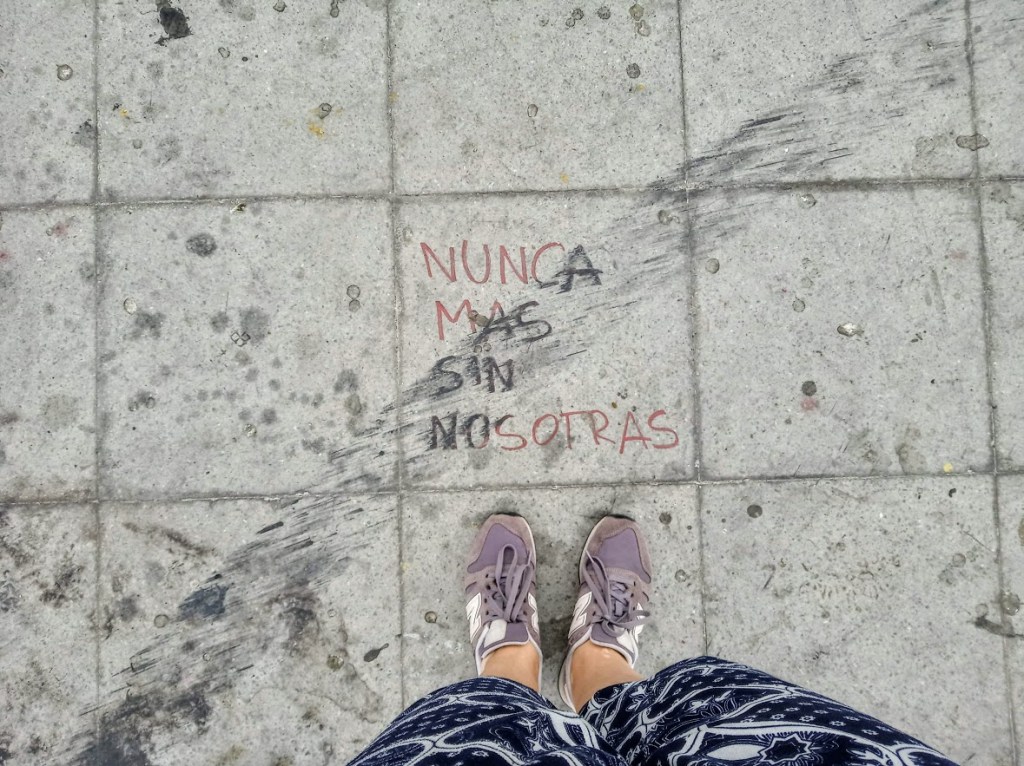 NUNCA
MAS
SIN
NOSOTRAS